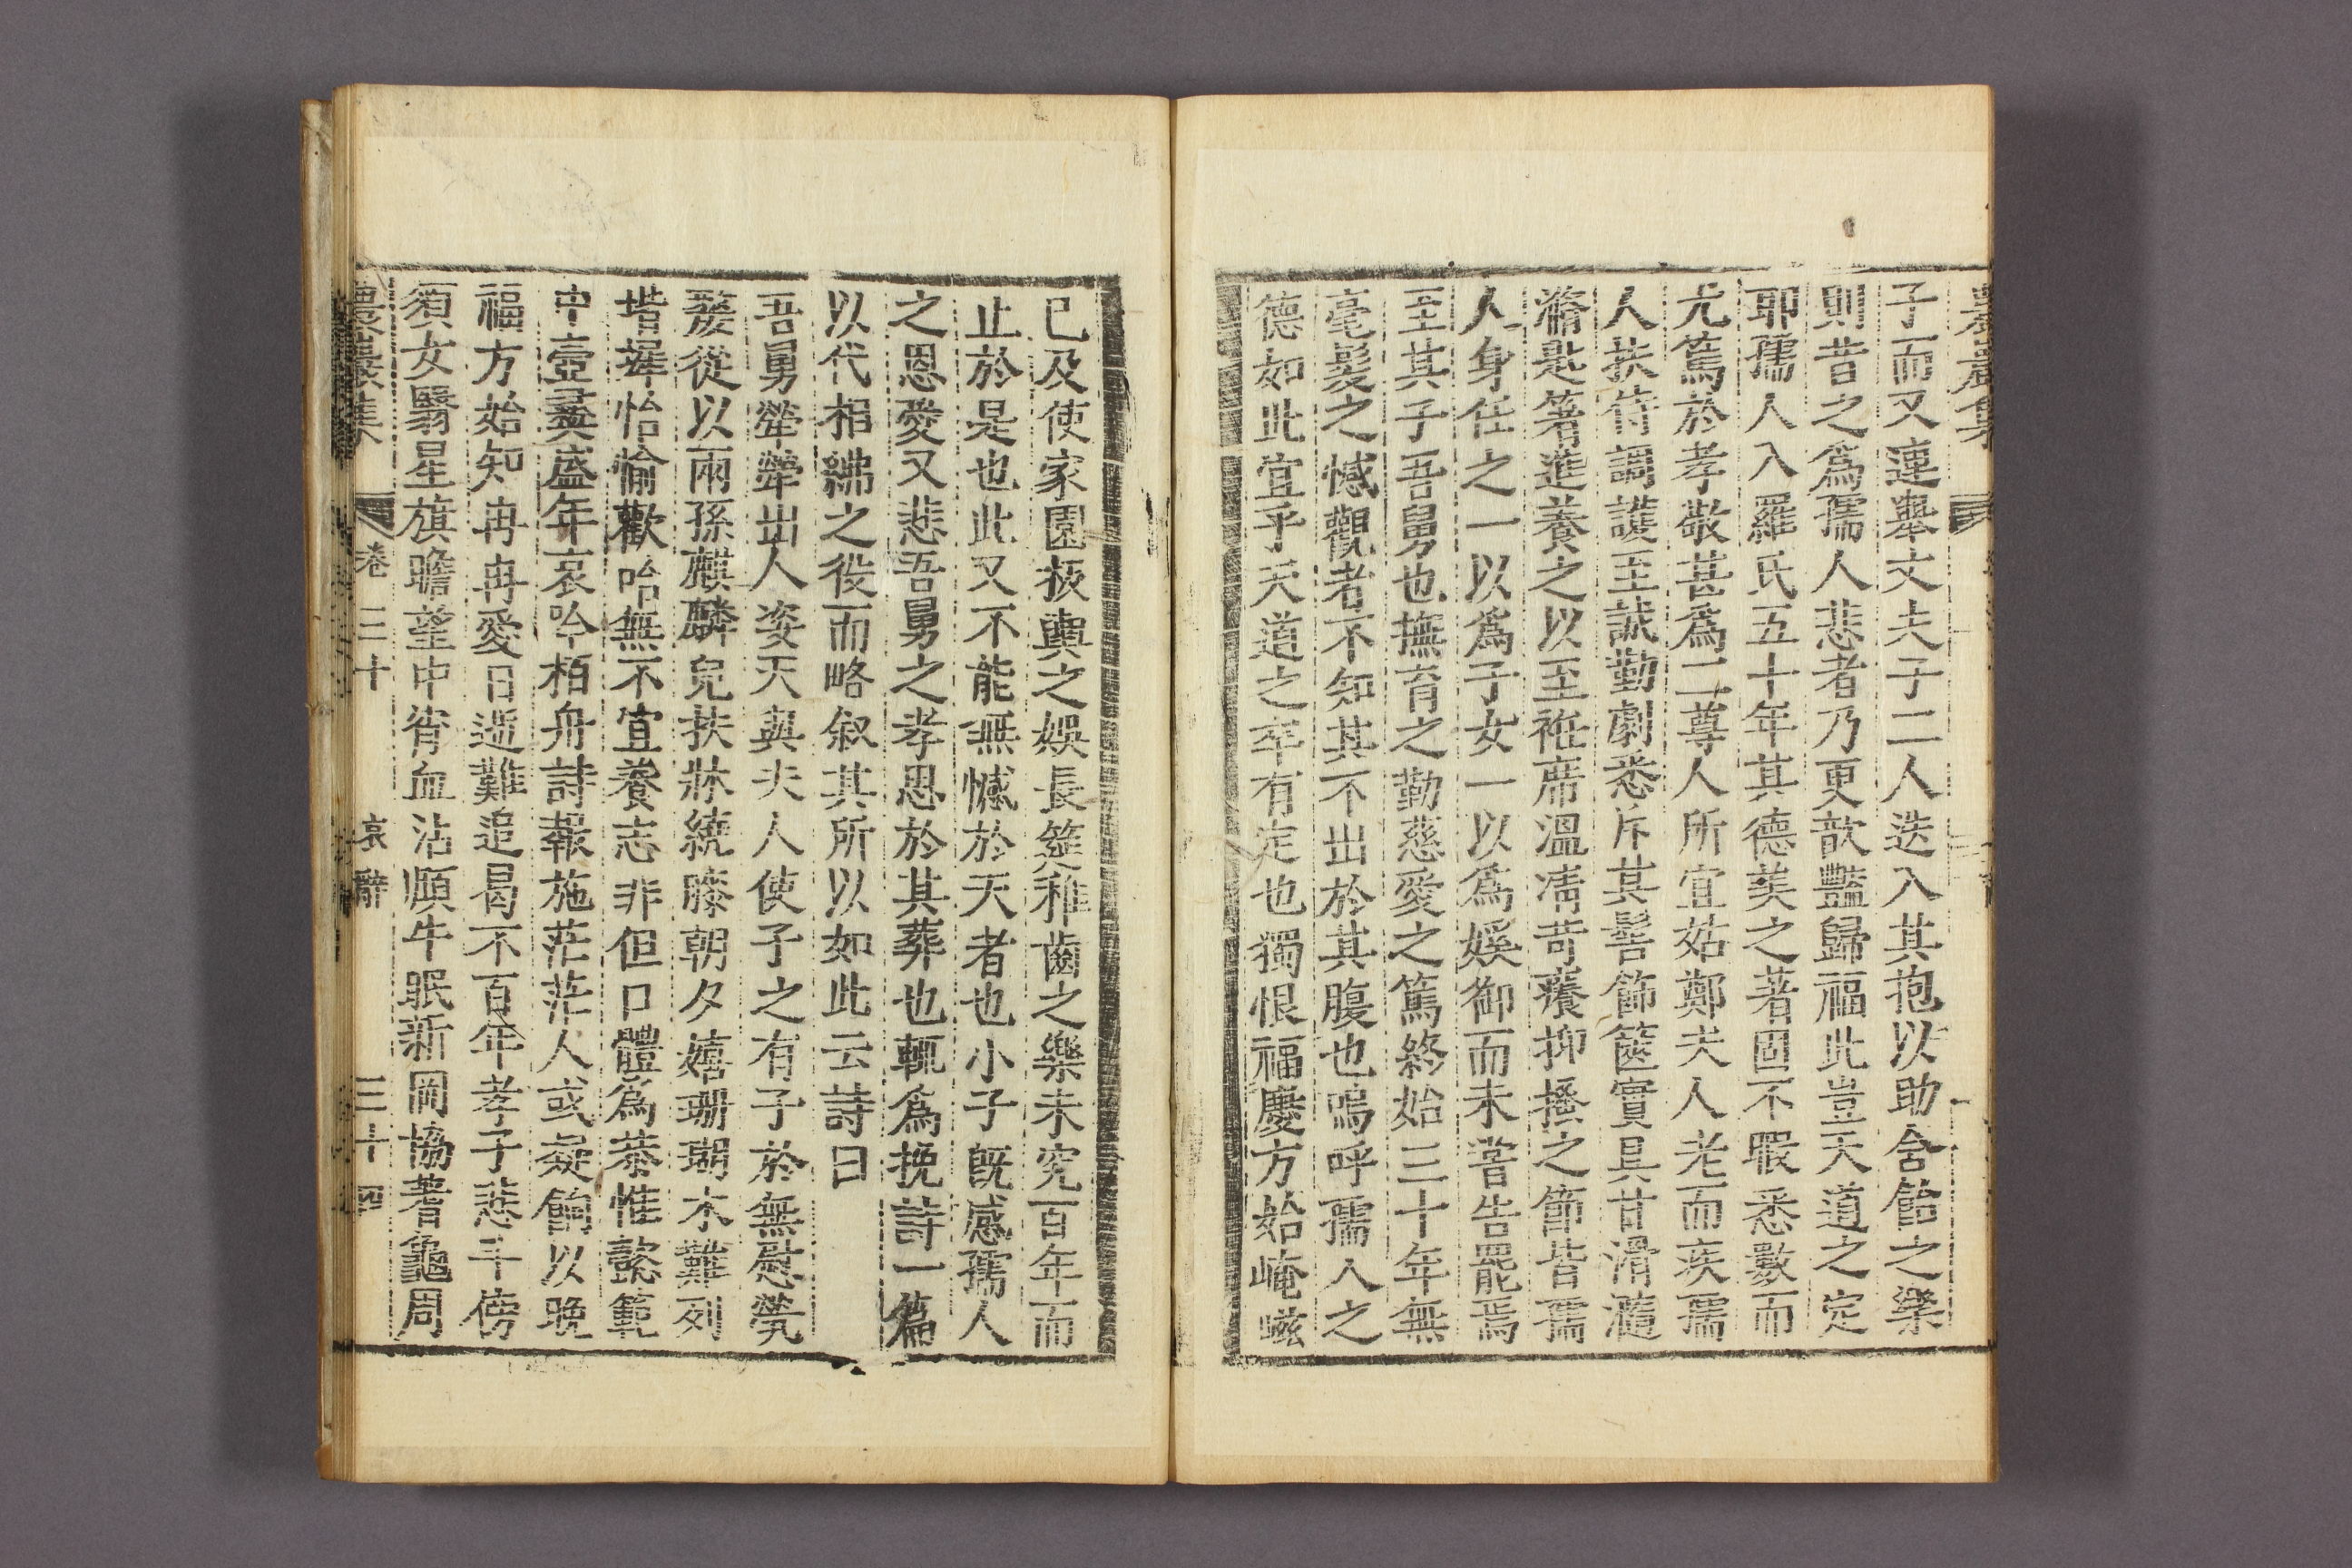 農巖集
子而又連擧丈夫子二人迭入其抱以助含飴之樂
則昔之爲孺人悲者乃更歆豔歸福此豈天道之定
耶孺人入羅氏五十年其德美之著固不暇悉數而
尤篤於孝敬甚爲二尊人所宜姑鄭夫人老而疾孺
人扶侍調護至誠勤劇悉斥其髻飾篋實具甘滑瀡
滫匙箸進養之以至袵席溫凊苛癢抑搔之節皆孺
人身任之一以爲子女一以爲媵御而未嘗告罷焉
至其子吾舅也撫育之勤慈愛之篤終始三十年無
毫髮之憾觀者不知其不出於其腹也嗚呼孺人之
德如此宜乎天道之卒有定也獨恨福慶方始崦嵫
已及使家園板輿之娛長筵稚齒之樂未究百年而
止於是也此又不能無憾於天者也小子旣感孺人
之恩愛又悲吾舅之孝思於其葬也輒爲挽詩一篇
以代相紼之役而略叙其所以如此云詩曰
吾舅犖犖出人姿天與夫人使子之有子於無慰煢
嫠從以兩孫麒麟兒扶牀繞膝朝夕嬉珊瑚木難列
堦墀怡愉歡哈無不宜養志非但口體爲恭惟懿範
中壼彛盛年哀吟栢舟詩報施茫茫人或疑餉以晚
福方始知冉冉愛日逝難追曷不百年孝子悲斗傍
須女翳星旗瞻望中宵血沾頤牛眠新岡協蓍龜周
農巖集 卷三十 哀辭 三十四